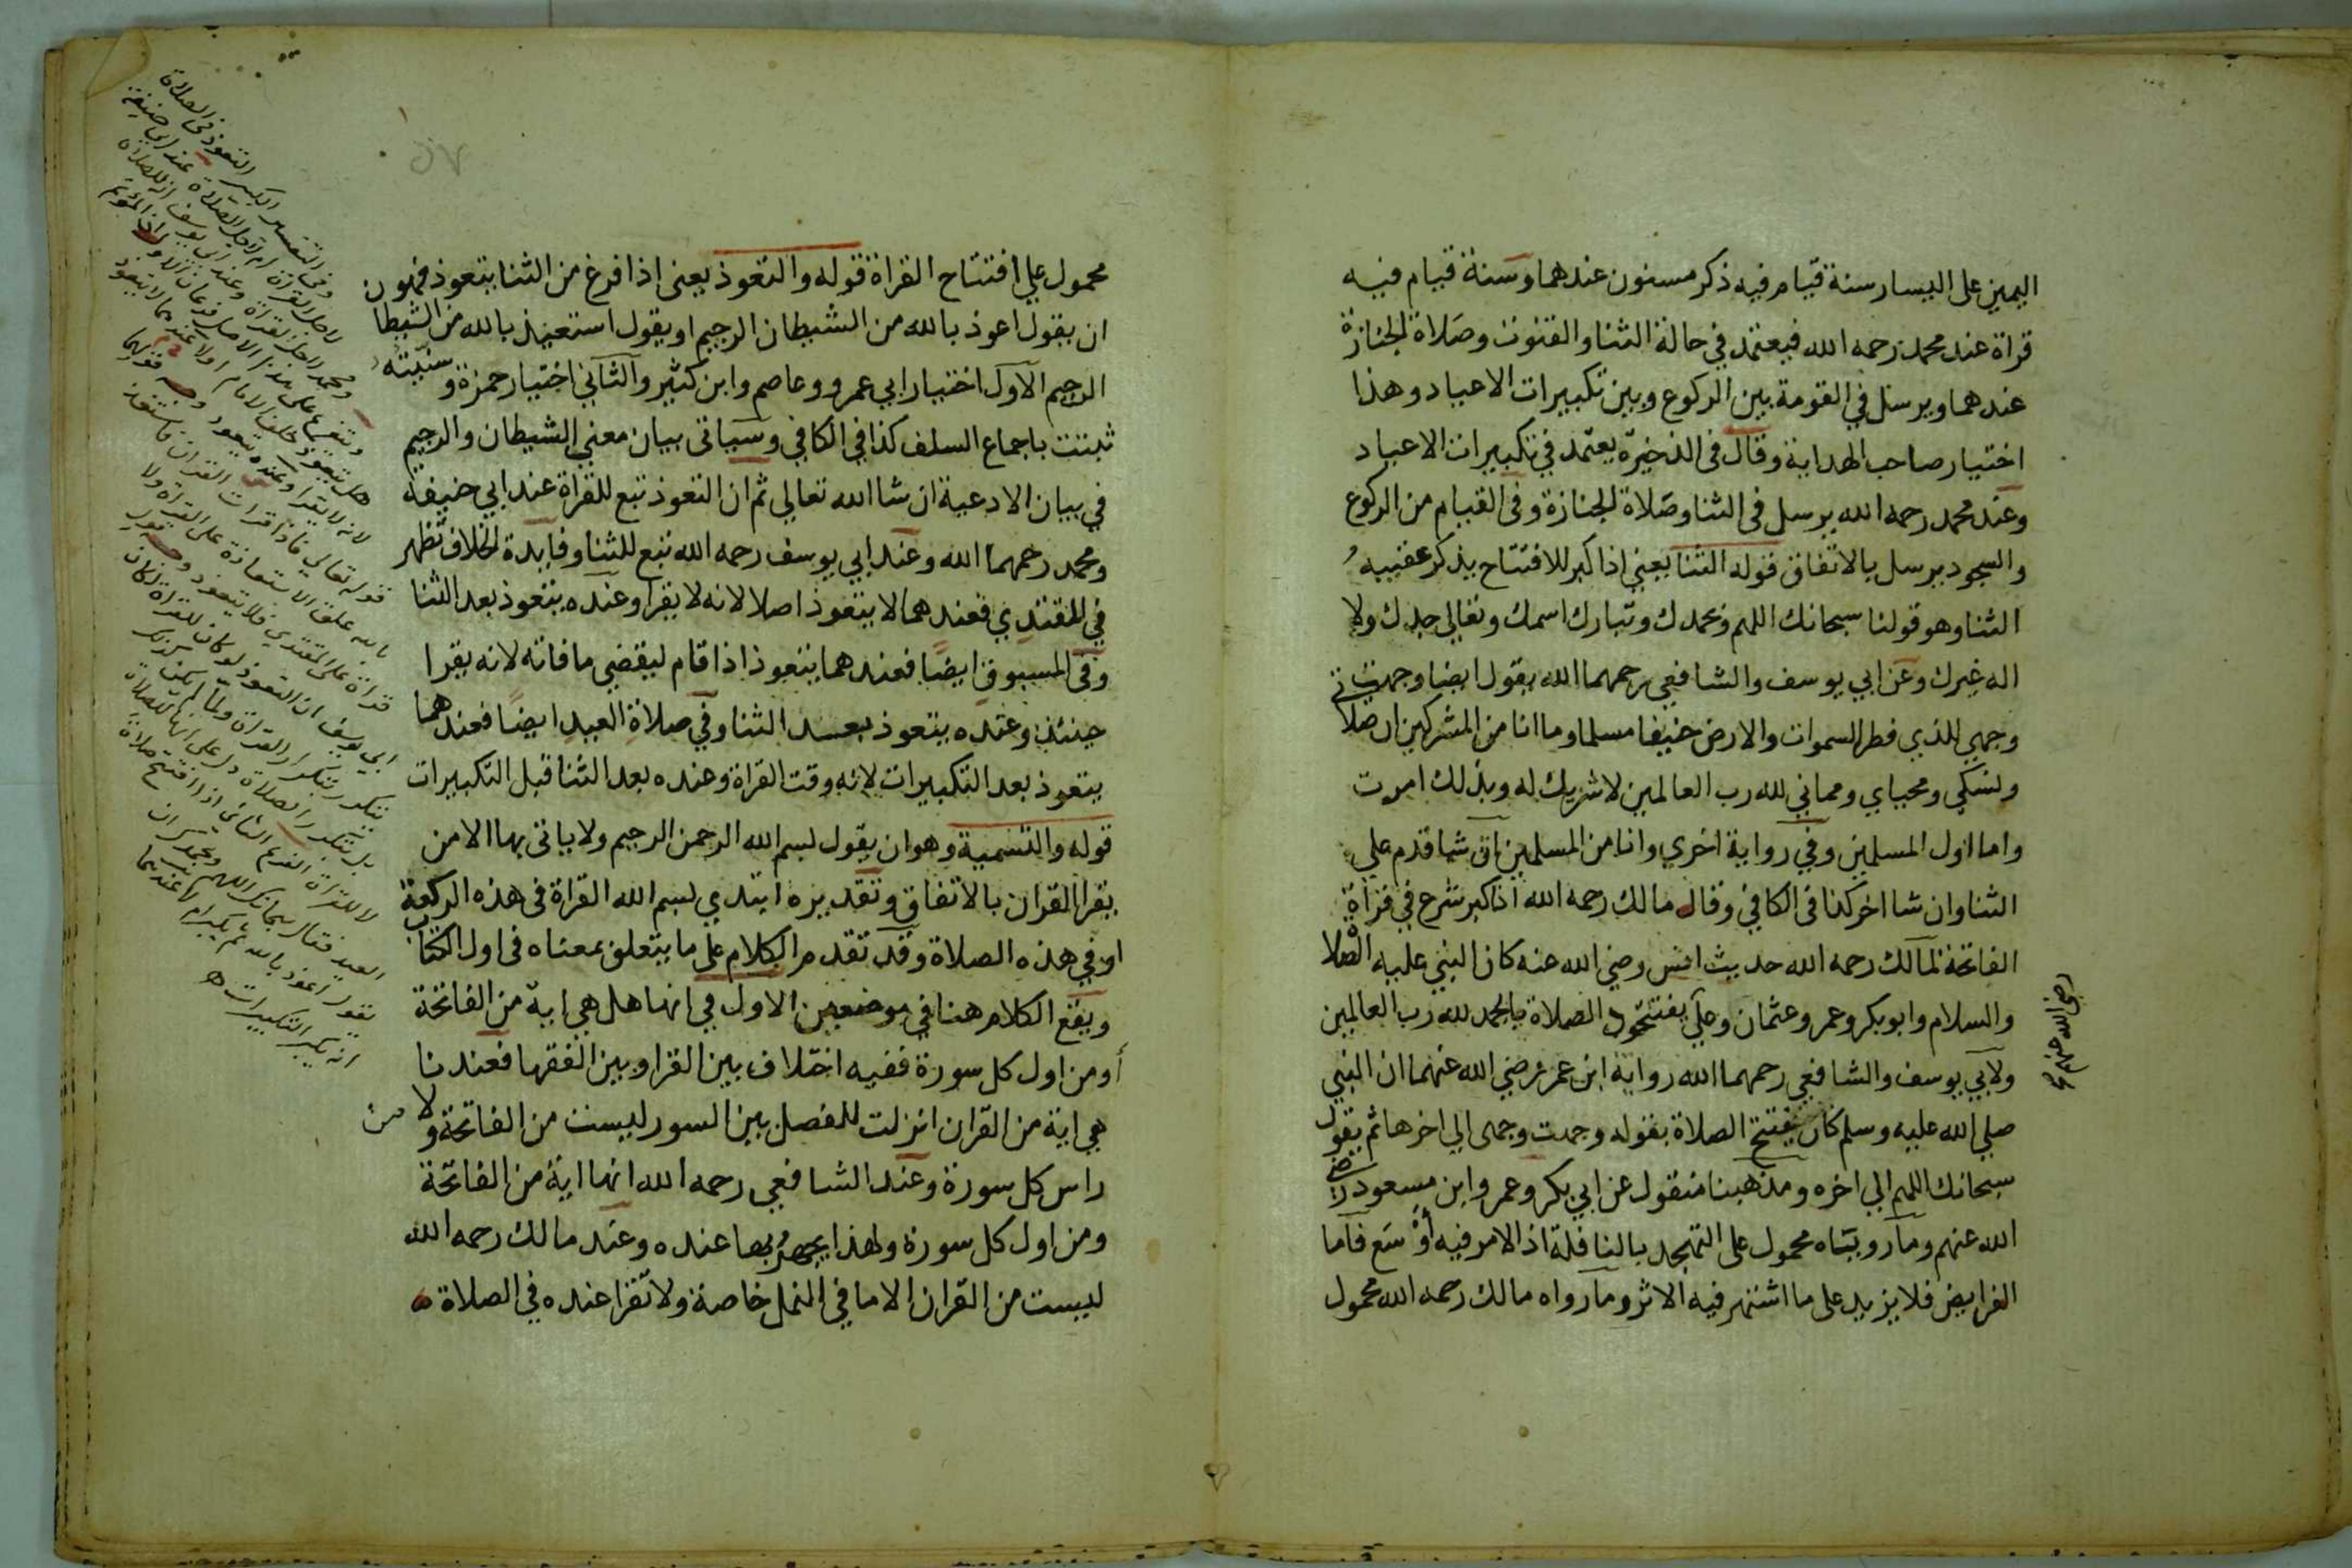 اليمين على اليسار سنة قيام فيه ذكر مسنون عندهما وسنة قيام فيه
قراة عند محمد رحمه الله فيعتمد في حالة الثنا والقنوت وصلاة الجنازة
عندهما ويرسل في القومة بين الركوع وبين تكبيرات الاعياد وهذا
اختيار صاحب الهداية وقال فى الذخيرة يعتمد في تكبيرات الاعياد
وعند محمد رحمه الله يرسل فى الثنا وصلاة الجنازة وفى القيام من الركوع
والسجود يرسل بالاتفاق قوله الثنا يعني اذا كبر للافتتاح يذكر عقيبه
الثنا وهو قولنا سبحانك اللهم وبحمدك وتبارك اسمك وتعالى جدك ولا
اله غيرك وعن ابي يوسف والشافعي رحمهما الله يقول ايضا وجهت
وجهي للذي فطر السموات والارض حنيفا مسلما وما انا من المشركين ان صلاتي
ونسكي ومحياي ومماتي لله رب العالمين لا شريك له وبذلك امرت
وانا اول المسلمين وفي رواية اخري وانا من المسلمين ان شا قدم علي
الثنا وان شا اخر كذا فى الكافي وقال مالك رحمه الله اذا كبر شرع في قراة
الفاتحة لمالك رحمه الله حديث انس رضي الله عنه كان النبي عليه الصلا
والسلام وابو بكر وعمر وعثمان وعلي يفتتحون الصلاة بالحمد لله رب العالمين
رضي الله عنهم
ولابي يوسف والشافعي رحمهما الله رواية ابن عمر رضي الله عنهما ان النبي
صلي الله عليه وسلم كان يفتتح الصلاة بقوله وجهت وجهى الي اخرها ثم يقول
سبحانك اللهم الي اخره ومذهبنا منقول عن ابي بكر وعمر وابن مسعود رضي
الله عنهم وما رويناه محمول على التهجد بالنافلة اذ الامر فيه أوسع فاما
الفرايض فلا يزيد على ما اشتهر فيه الاثر وما رواه مالك رحمه الله محمول
٥٧
محمول علي افتتاح القراة قوله والتعوذ يعنى اذا فرغ من الثنا يتعوذ فهو
ان يقول اعوذ بالله من الشيطان الرجيم او يقول استعيذ بالله من الشيطان
الرجيم الاول اختيار ابي عمرو وعاصم وابن كثير والثاني اختيار حمزة وسنيته
ثبتت باجماع السلف كذا في الكافي وسياتى بيان معني الشيطان والرجيم
في بيان الادعية ان شا الله تعالي ثم ان التعوذ تبع للقراة عند ابي حنيفة
ومحمد رحمهما الله وعند ابي يوسف رحمه الله تبع للثنا وفايدة الخلاف تظهر
في المقتدي فعندهما لا يتعوذ اصلا لانه لا يقرا وعنده يتعوذ بعد الثنا
وفى المسبوق ايضا فعندهما يتعوذ اذا قام ليقضي ما فاته لانه يقرا
حينئذ وعنده يتعوذ بعد الثنا وفي صلاة العيد ايضا فعندهما
يتعوذ بعد التكبيرات لانه وقت القراة وعنده بعد الثنا قبل التكبيرات
قوله والتسمية وهو ان يقول بسم الله الرحمن الرحيم ولا ياتى بها الا من
يقرا القران بالاتفاق وتقديره ابتدي بسم الله القراة فى هذه الركعة
او في هذه الصلاة وقد تقدم الكلام على ما يتعلق بمعناه فى اول الكتاب
ويقع الكلام هنا في موضعين الاول في انها هل هي اية من الفاتحة
أو من اول كل سورة ففيه اختلاف بين القرا وبين الفقها فعندنا
هي اية من القران انزلت للفصل بين السور ليست من الفاتحة ولا من
راس كل سورة وعند الشافعي رحمه الله انها اية من الفاتحة
ومن اول كل سورة ولهذا يجهر بها عنده وعند مالك رحمه الله
ليست من القران الا ما في النمل خاصة ولا تقرا عنده في الصلاة
وفى التفسير الكبير التعوذ فى الصلاة
لاجل القراة ام لاجل الصلاة عند ابي حنيفة
ومحمد لاجل القراة وعند ابي يوسف انه للصلاة
ويتفرع على هذا الاصل فرعان الاول ان المؤتم
هل يتعوذ خلف الامام ام لا عندهما لا يتعوذ
لانه لا يقرا وعنده يتعوذ وجه قولهما
قوله تعالي فاذا قرات القران فاستعذ
بالله علق الاستعاذة على القراة ولا
قراة على المقتدي فلا يتعوذ وجه قول
ابي يوسف ان التعوذ لو كان للقراة لكان
يتكرر بتكرار القراة ولما لم يكن كذلك
بل يتكرر بتكرر الصلاة دل على انها للصلاة
لا للقراة الفرع الثانى اذا افتتح صلاة
العيد فقال سبحانك اللهم وبحمدك ان
يقول اعوذ بالله ثم يكبر ام لا عندهما
انه يكبر التكبيرات